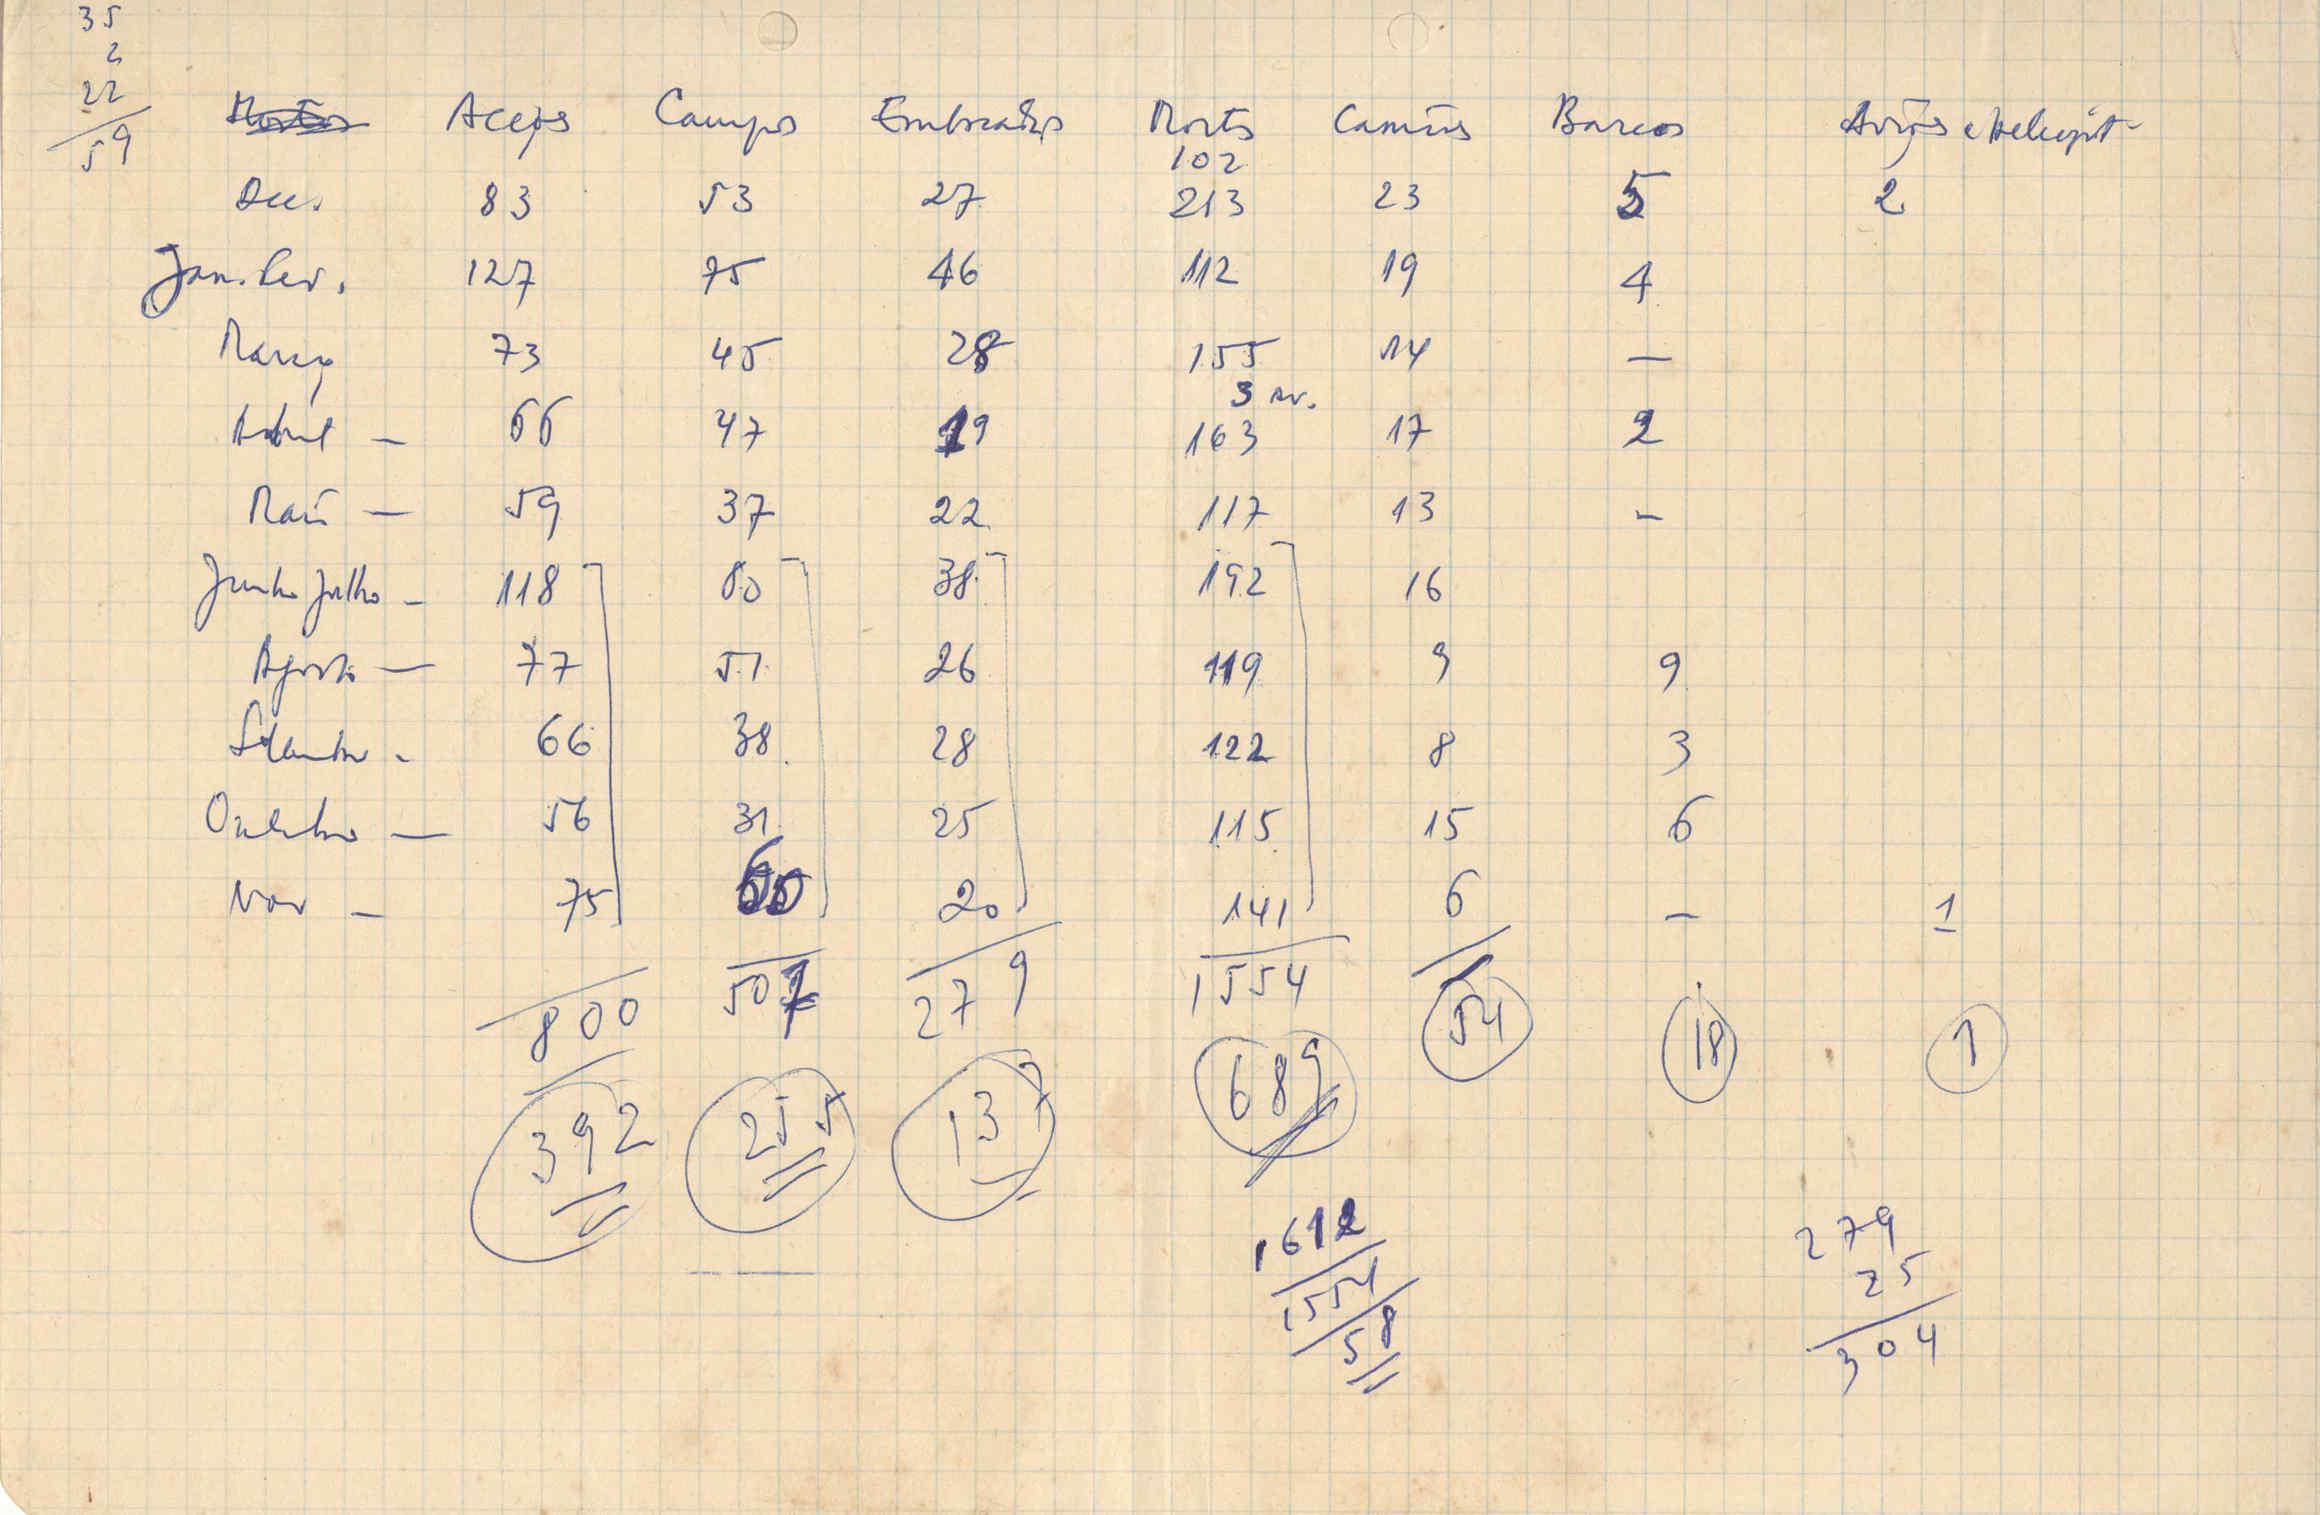 35
2
22
59
Mortos Acções Campos Emboscadas Mortos Camiões Barcos Aviões e Helicópt.
102
Dec. 83 53 27 213 23 5 2
Jan. Fev. 127 75 46 112 19 4
Março 73 45 28 155 14 —
3 av.
Abril — 66 47 19 163 17 2
Maio — 59 37 22 117 13 -
Junho Julho - 118 80 38 192 16
Agosto — 77 51 26 119 9 9
Setembro - 66 38 28 122 8 3
Outubro — 56 31 25 115 15 6
Nov — 75 20 141 6 — 1
800 507 279 1554 54 18 1
392 255 137 689
1612
1554
58
279
25
304